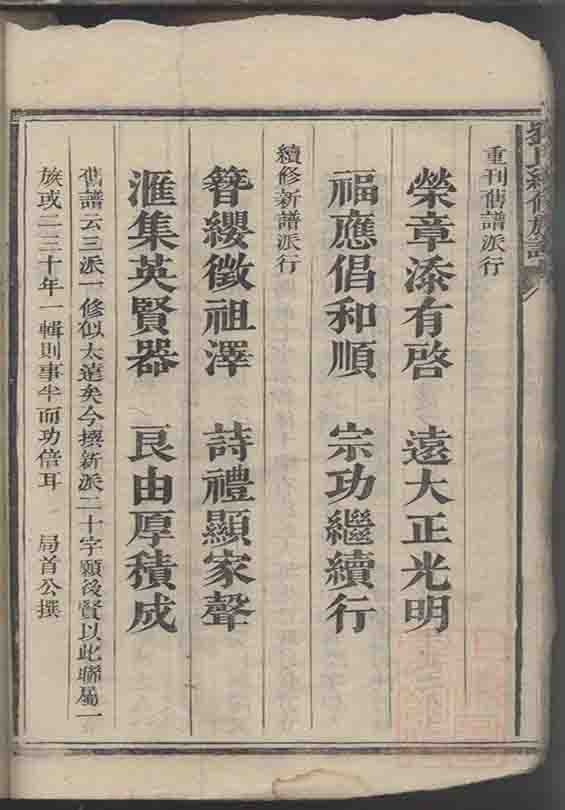 重刊舊譜派行
榮章添有啓　遠大正光明
福應倡和順　宗功繼續行
續修新譜派行
簪纓徵祖澤　詩禮顯家聲
滙集英賢器　良由厚積成
舊譜云三派一修似太遠矣今撰新派二十字願後賢以此聯屬一
族或二三十年一輯則事半而功倍耳　局首公撰